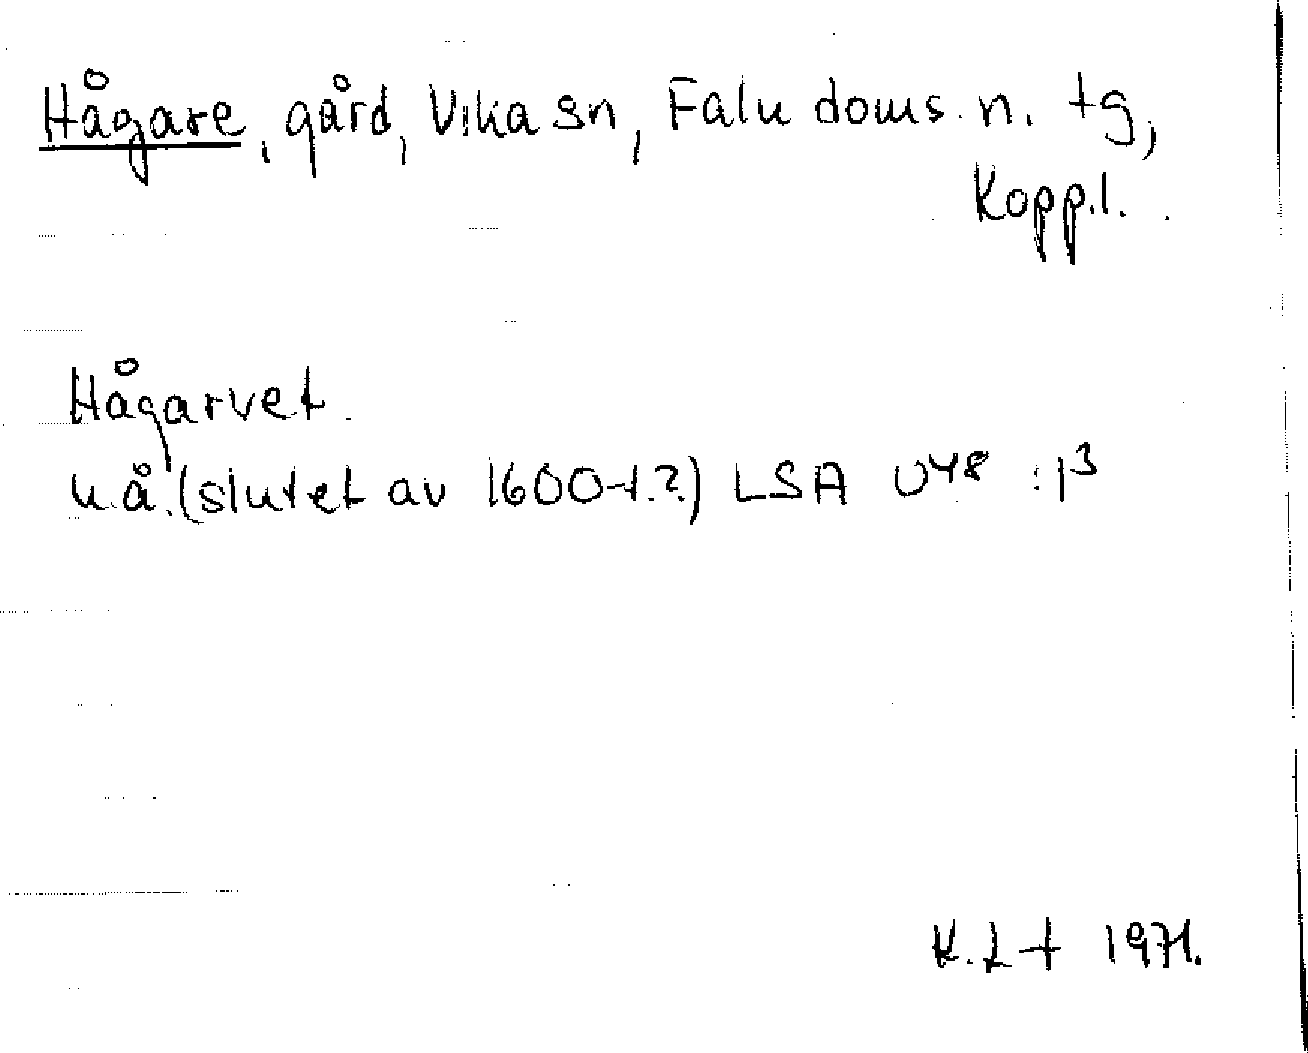 Hågare, gård, Vika sn, Falu doms. n. tg,
Kopp.l.
Hågarvet.
u.å. (slutet av 1600-t.?) LSA U48 :1³
K. L-t 1971.